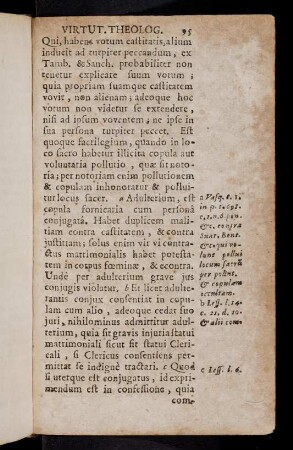 VIRTUT. THEOLOG. 95
Qui, habens votum castitatis, alium
inducit ad turpiter peccandum, ex
Tamb. & Sanch. probabiliter non
tenetur explicare suum votum;
quia propriam suamque castitatem
vovit, non alienam; adeoque hoc
votum non videtur se extendere,
nisi ad ipsum voventem, ne ipse in
sua persona turpiter peccet. Est
quoque sacrilegium, quando in lo-
co sacro habetur illicita copula aut
voluntaria pollutio, quæ sit noto-
ria; per notoriam enim pollutionem
& copulam inhonoratur & pollui-
tur locus sacer. a Adulterium, est
copula fornicaria cum personâ
conjugatâ. Habet duplicem mali-
tiam contra castitatem, & contra
justitiam; solus enim vir vi contra-
ctus matrimonialis habet potesta-
tem in corpus fœminæ, & econtra.
Unde per adulterium grave jus
conjugis violatur. b Et licet adulte-
rantis conjux consentiat in copu-
lam cum alio, adeoque cedat suo
juri, nihilominus admittitur adul-
terium, quia sit gravis injuria statui
matrimoniali sicut fit statui Cleri-
cali, si Clericus consentiens per-
mittat se indignè tractari. c Quod
si uterque est conjugatus, id expri-
mendum est in confessione, quia
com-
a Vasq. t. 2.
in p.
& c. contra
Suar. Bona.
& c. qui vo-
lunt pollui
locum sacrū
per pollut.
& copulam
occultam.
b Less. l. 4.
c. 21. d. 10.
& alii com.
c Less. l. 6.